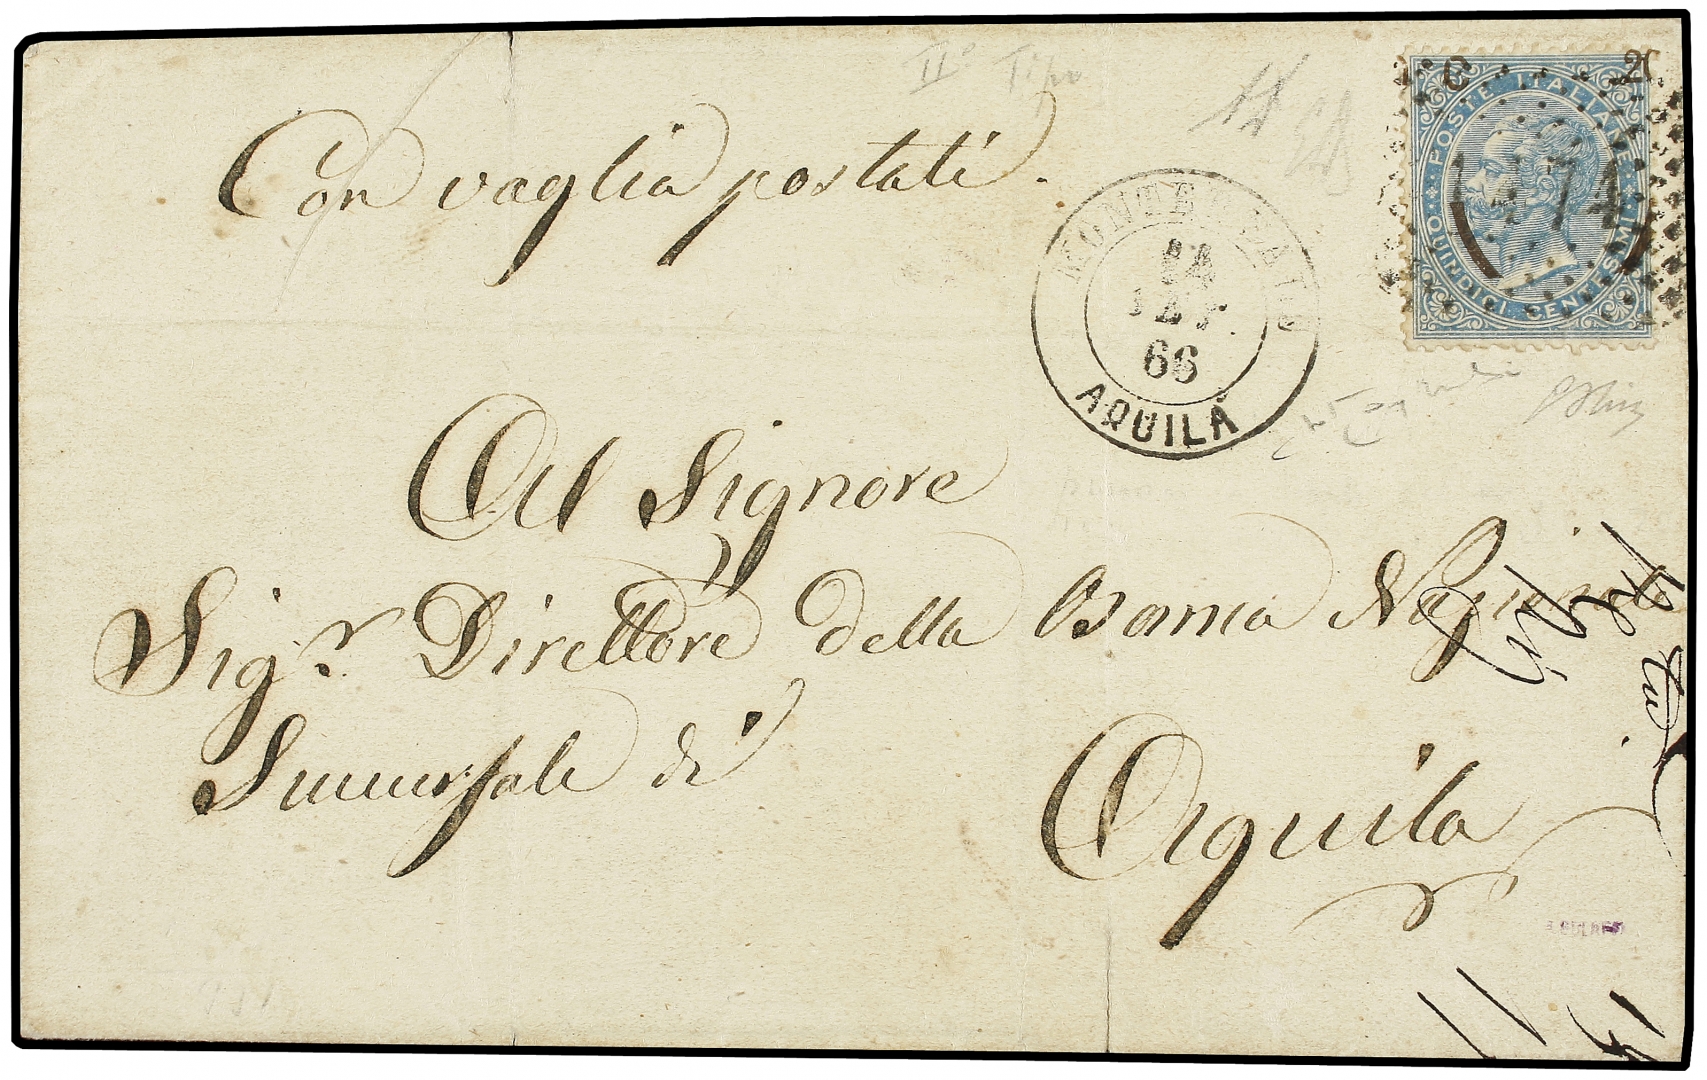 IIº Tipo
Con vaglia postali.
C 20
POSTE ITALIANE
QUINDICI CENTESIMI
MONTEREALE
14
SET
66
AQUILA
Al Signore
Sigr. Direttore della Banca Nazionale
Succursale di
Aquila